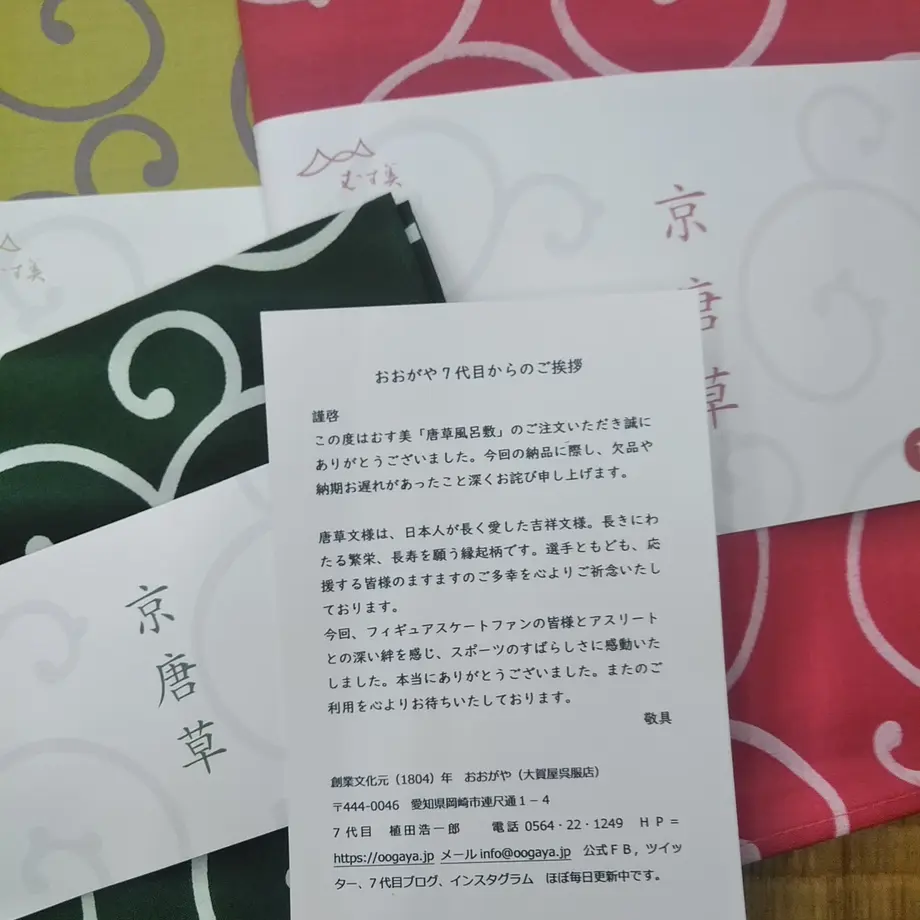 むす美
京
唐
草
す美
京
唐
草
おおがや7代目からのご挨拶
謹啓
この度はむす美「唐草風呂敷」のご注文いただき誠に
ありがとうございました。今回の納品に際し、欠品や
納期お遅れがあったこと深くお詫び申し上げます。
唐草文様は、日本人が長く愛した吉祥文様。長きにわ
たる繁栄、長寿を願う縁起柄です。選手ともども、応
援する皆様のますますのご多幸を心よりご祈念いたし
ております。
今回、フィギュアスケートファンの皆様とアスリート
との深い絆を感じ、スポーツのすばらしさに感動いた
しました。本当にありがとうございました。またのご
利用を心よりお待ちいたしております。
敬具
創業文化元（1804）年　おおがや（大賀屋呉服店）
〒444-0046　愛知県岡崎市連尺通１－４
７代目　植田浩一郎　　電話 0564・22・1249　ＨＰ＝
https://oogaya.jp メール info@oogaya.jp　公式ＦＢ，ツイッ
ター、７代目ブログ、インスタグラム　ほぼ毎日更新中です。